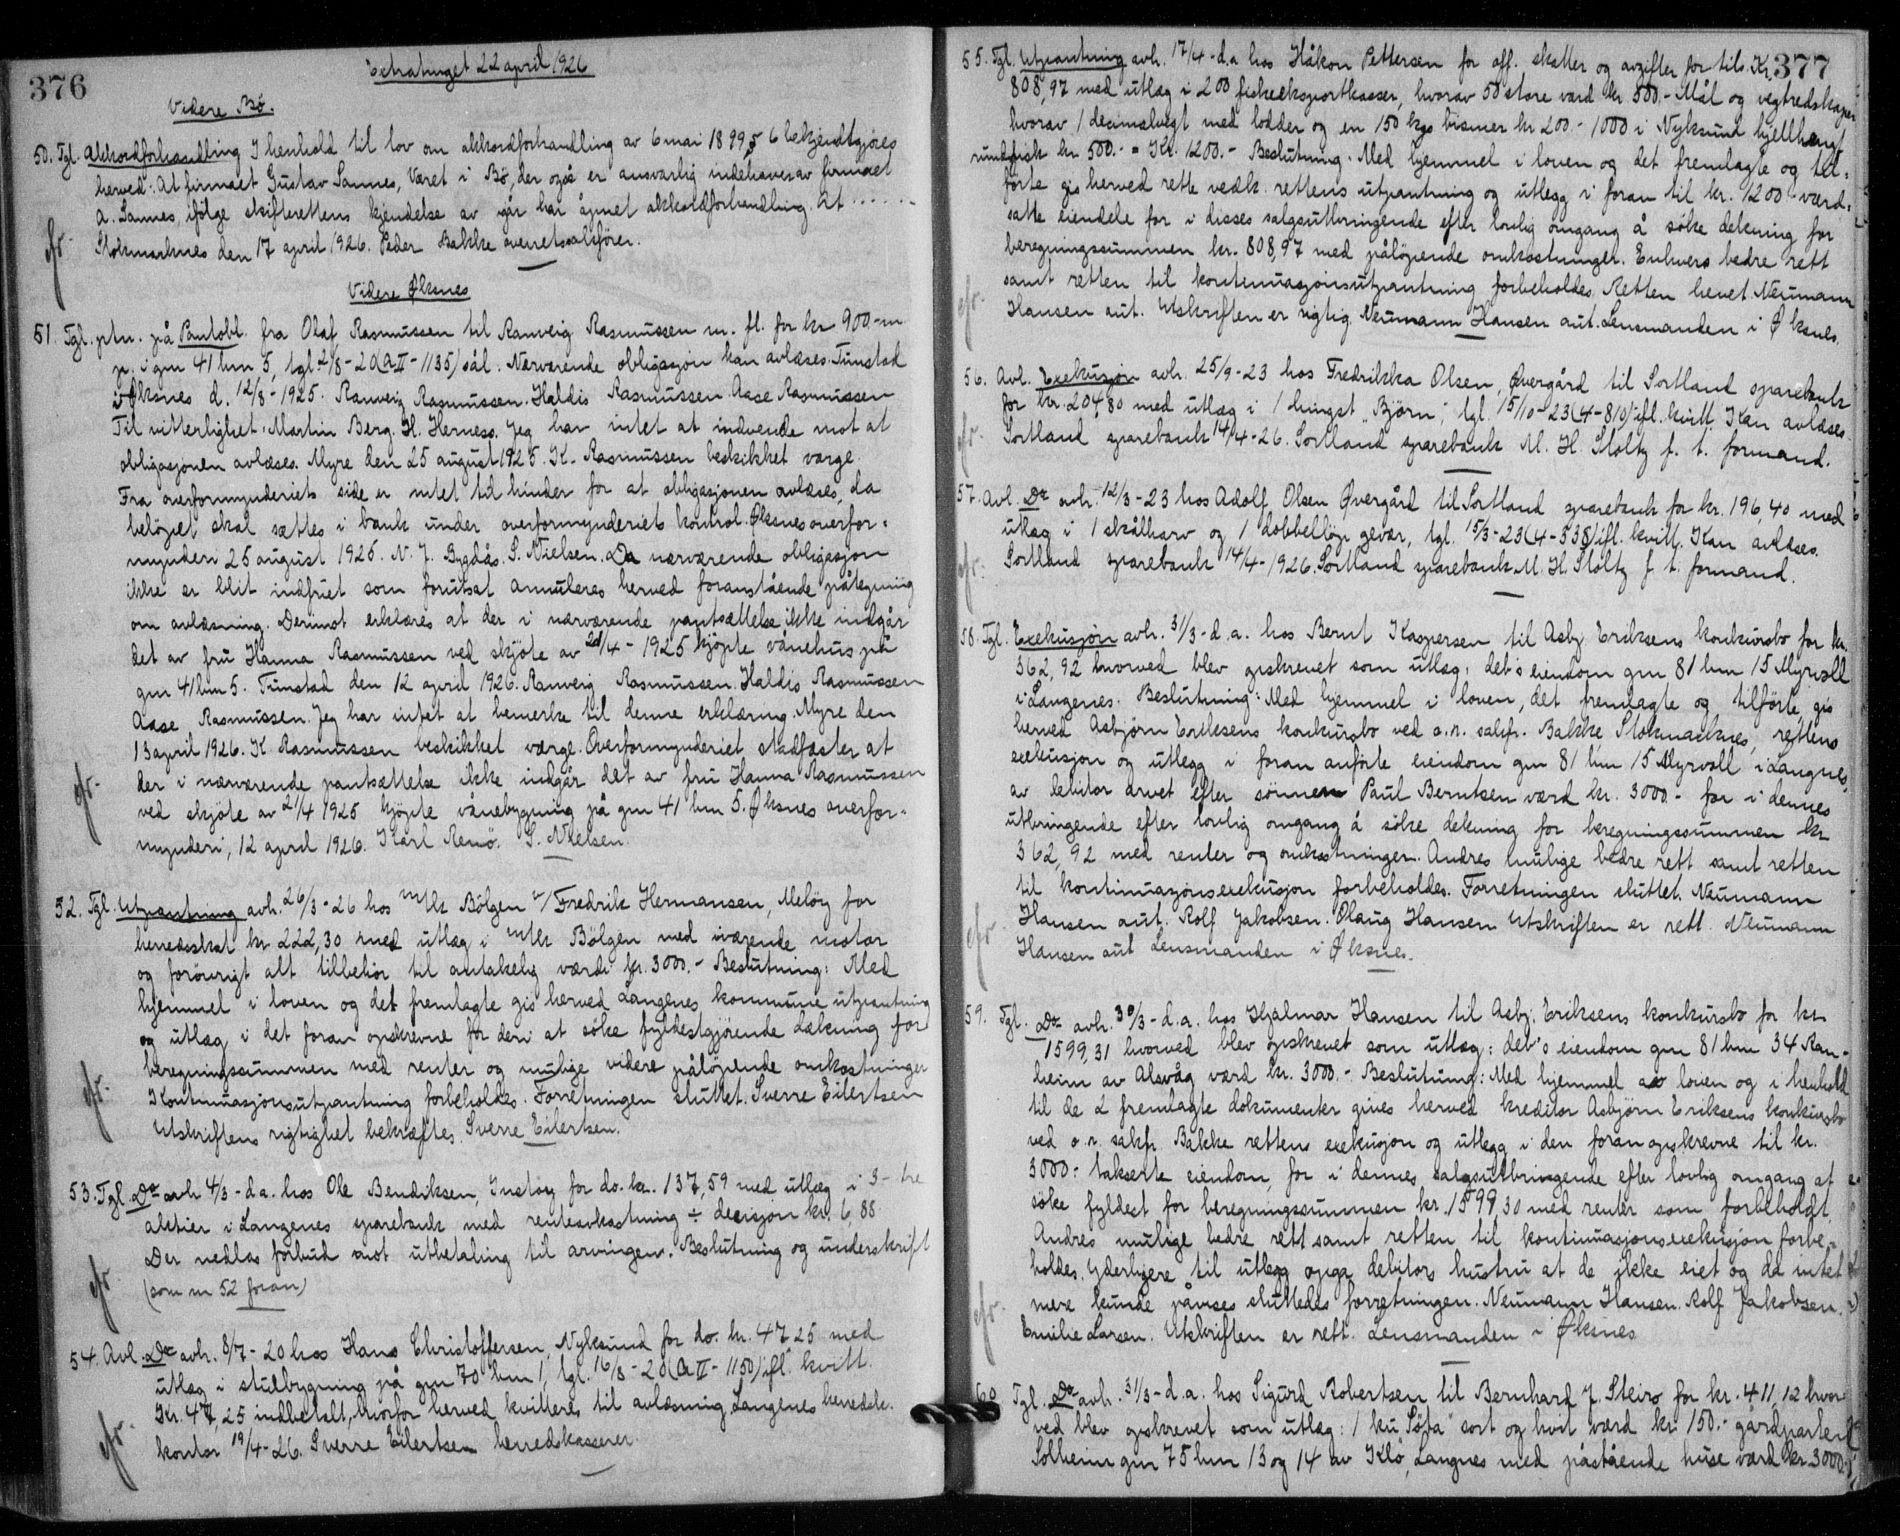 376
Extratinget 22 april 1926
Videre Bø.
50. Tgl. Akkordforhandling I henhold til lov om akkordforhandling av 6 mai 1899 § 6 bekjendtgjøres
herved: At firmaet Gustav Sannes, Været i Bø, der også er ansvarlig indehaver av firmaet
A. Sannes, ifølge skifterettens kjendelse av igår har åpnet akkordforhandling. At ......
Stokmarknes den 17 april 1926. Peder Bakke overretssakfører.
Videre Øksnes
51. Tgl. ptn. på Pantobl. fra Olaf Rasmussen til Ranveig Rasmussen m. fl. for kr 900- m
p. i gnr 41 bnr 5, tgl. 2/8-20 (A II - 1135) sål. Nærværende obligasjon kan avlæses. Tunstad
i Øksnes d. 12/8-1925. Ranveig Rasmussen. Haldis Rasmussen Aase Rasmussen
Til vitterlighet: Martin Berg. H. Herness. Jeg har intet at indvende mot at
obligasjonen avlæses. Myre den 25 august 1925. K. Rasmussen beskikket værge.
Fra overformynderiets side er intet til hinder for at obligasjonen avlæses, da
beløpet skal sættes i bank under overformynderiets kontrol. Øksnes overfor=
mynderi 25 august 1925. N. J. Bygdås. S. Nielsen. Da nærværende obligasjon
ikke er blit indfriet som forutsat annuleres herved foranstående påtegning
om avlæsning. Derimot erklæres at der i nærværende pantsættelse ikke indgår
det av fru Hanna Rasmussen ved skjøte av 21/4-1925 kjøpte vånehus på
gnr 41 bnr 5. Tunstad den 12 april 1926. Ranveig Rasmussen. Haldis Rasmussen
Aase Rasmussen. Jeg har intet at bemerke til denne erklæring. Myre den
13 april 1926. K. Rasmussen beskikket værge. Overformynderiet stadfæster at
der i nærværende pantsættelse ikke indgår det av fru Hanna Rasmussen
ved skjøte av 21/4 1925 kjøpte vånebygning på gnr 41 bnr 5. Øksnes overfor-
mynderi, 12 april 1926. Karl Remø. S. Nielsen.
52. Tgl. Utpantning avh. 26/3-26 hos m/k Bølgen v/ Fredrik Hermansen, Meløy for
herredsskat kr 222,30 med utlæg i m/k Bølgen med iværende motor
og forøvrigt alt tilbehør til antakelig værdi kr. 3000.- Beslutning: Med
hjemmel i loven og det fremlagte gis herved Langenes kommune utpantning
og utlæg i det foran opskrevne for deri at søke fyldestgjørende dækning for
beregningssummen med renter og mulige videre påløpende omkostninger
Kontinuasjonsutpantning forbeholdes. Forretningen sluttet. Sverre Eilertsen
Utskriftens rigtighet bekræftes. Sverre Eilertsen.
53. Tgl. Do avh 4/3-d.a. hos Ole Bendriksen, Instøy for do. kr. 137,59 med utlæg i 3- tre
aktier i Langenes sparebank med renteavkastning ÷ decisjon kr. 6,88.
Der nedlas forbud mot utbetaling til arvingen. Beslutning og underskrift
(som nr 52 foran)
54. Avl. Do avh. 8/7-20 hos Hans Christoffersen, Nyksund for do. kr. 47,25 med
utlæg i stuebygning på gnr 70 bnr 1, tgl. 16/8-20 (A II - 1150) ifl. kvitt.
Kr. 47,25 indbetalt, hvorfor herved kvitteres til avlæsning. Langenes herredsk.
kontor 19/4-26. Sverre Eilertsen herredskasserer.
377
55. Tgl. Utpantning avh. 17/4-d.a hos Håkon Pettersen for off. skatter og avgifter for tils. Kr.
808,97 med utlæg i 200 fiskeeksportkasser, hvorav 50 store værd kr 500.- Mål og vegtredskaper
hvorav 1 decimalvegt med lodder og en 150 kgs bismer kr 200.- 1000 i Nyksund hjellhængt
rundfisk kr 500.- = Kr. 1200.- Beslutning. Med hjemmel i loven og det fremlagte og til=
førte gis herved rette vedk. rettens utpantning og utlegg i foran til kr. 1200 værd=
satte eiendele for i disses salgsutbringende efter lovlig omgang å søke dekning for
beregningssummen kr. 808,97 med påløpende omkostninger. Enhvers bedre rett
samt retten til kontinuasjonsutpantning forbeholdes. Retten hevet. Neumann
Hansen aut. Utskriften er rigtig. Neumann Hansen aut. Lensmanden i Øksnes.
56. Avl. Exekusjon avh. 25/9-23 hos Fredrikka Olsen, Øvergård til Sortland sparebank
for kr. 204,80 med utlæg i 1 hingst "Bjørn" tgl. 15/10-23 (4-810) ifl. kvitt. Kan avlæses.
Sortland sparebank 14/4-26. Sortland sparebank M. H. Stoltz f. t. formand.
57. Avl. Do avh. 12/3-23 hos Adolf Olsen Øvergård til Sortland sparebank for kr. 196,40 med
utlæg i 1 skålharv og 1 dobbelløp gevær, tgl. 15/3-23 (4-538) ifl. kvitt. Kan avlæses.
Sortland sparebank 14/4-1926. Sortland sparebank M. H. Stoltz f. t. formand.
58. Tgl. Exekusjon avh. 31/3-d.a. hos Bernt Kaspersen til Asbj. Eriksens konkursbo for kr.
362,92 hvorved blev opskrevet som utlæg: deb's eiendom gnr 81 bnr 15 Myrvoll
i Langenes. Beslutning: Med hjemmel i loven, det fremlagte og tilførte gis
herved Asbjørn Eriksens konkursbo ved o.r. sakf. Bakke, Stokmarknes, rettens
exekusjon og utlegg i foran anførte eiendom gnr 81 bnr 15 Myrvoll i Langnes,
av debitor arvet efter sønnen Paul Berntsen værd kr. 3000.- for i dennes
utbringende efter lovlig omgang å søke dekning for beregningssummen kr
362,92 med renter og omkostninger. Andres mulige bedre rett samt retten
til kontinuasjonsexekusjon forbeholdes. Forretningen sluttet. Neumann
Hansen aut. Rolf Jakobsen. Olaug Hansen Utskriften er rett. Neumann
Hansen aut Lensmanden i Øksnes.
59. Tgl. Do avh. 30/3-d.a. hos Hjalmar Hansen til Asbj. Eriksens konkursbo for kr
1599,31 hvorved blev opskrevet som utlæg: deb's eiendom gnr 81 bnr 34 Ran-
heim av Alsvåg værd kr. 3000.- Beslutning: Med hjemmel av loven og i henhold
til de 2 fremlagte dokumenter gives herved kreditor Asbjørn Eriksens konkursbo
ved o.r. sakfr. Bakke rettens exekusjon og utlegg i den foran opskrevne til kr.
3000: takserte eiendom, for i dennes salgsutbringende efter lovlig omgang at
søke fyldest for beregningssummen kr. 1599,30 med renter som forbeholdt.
Andres mulige bedre rett samt retten til kontinuasjonsexekusjon forbe=
holdes. Yderligere til utlegg opga debitors hustru at de ikke eiet og da intet
mere kunde påvises sluttedes forretningen. Neumann Hansen. Rolf Jakobsen.
Emilie Larsen. Utskriften er rett. Lensmanden i Øksnes
60 Tgl. Do avh. 31/3-d.a. hos Sigurd Robertsen til Bernhard J. Steiro for kr. 411,12 hvor
ved blev opskrevet som utlæg: 1 ku "Søta" sort og hvit værd kr. 150.- gårdparten
Solheim gnr 75 bnr 13 og 14 av Klo, Langnes med påstående huse værd kr. 3000.